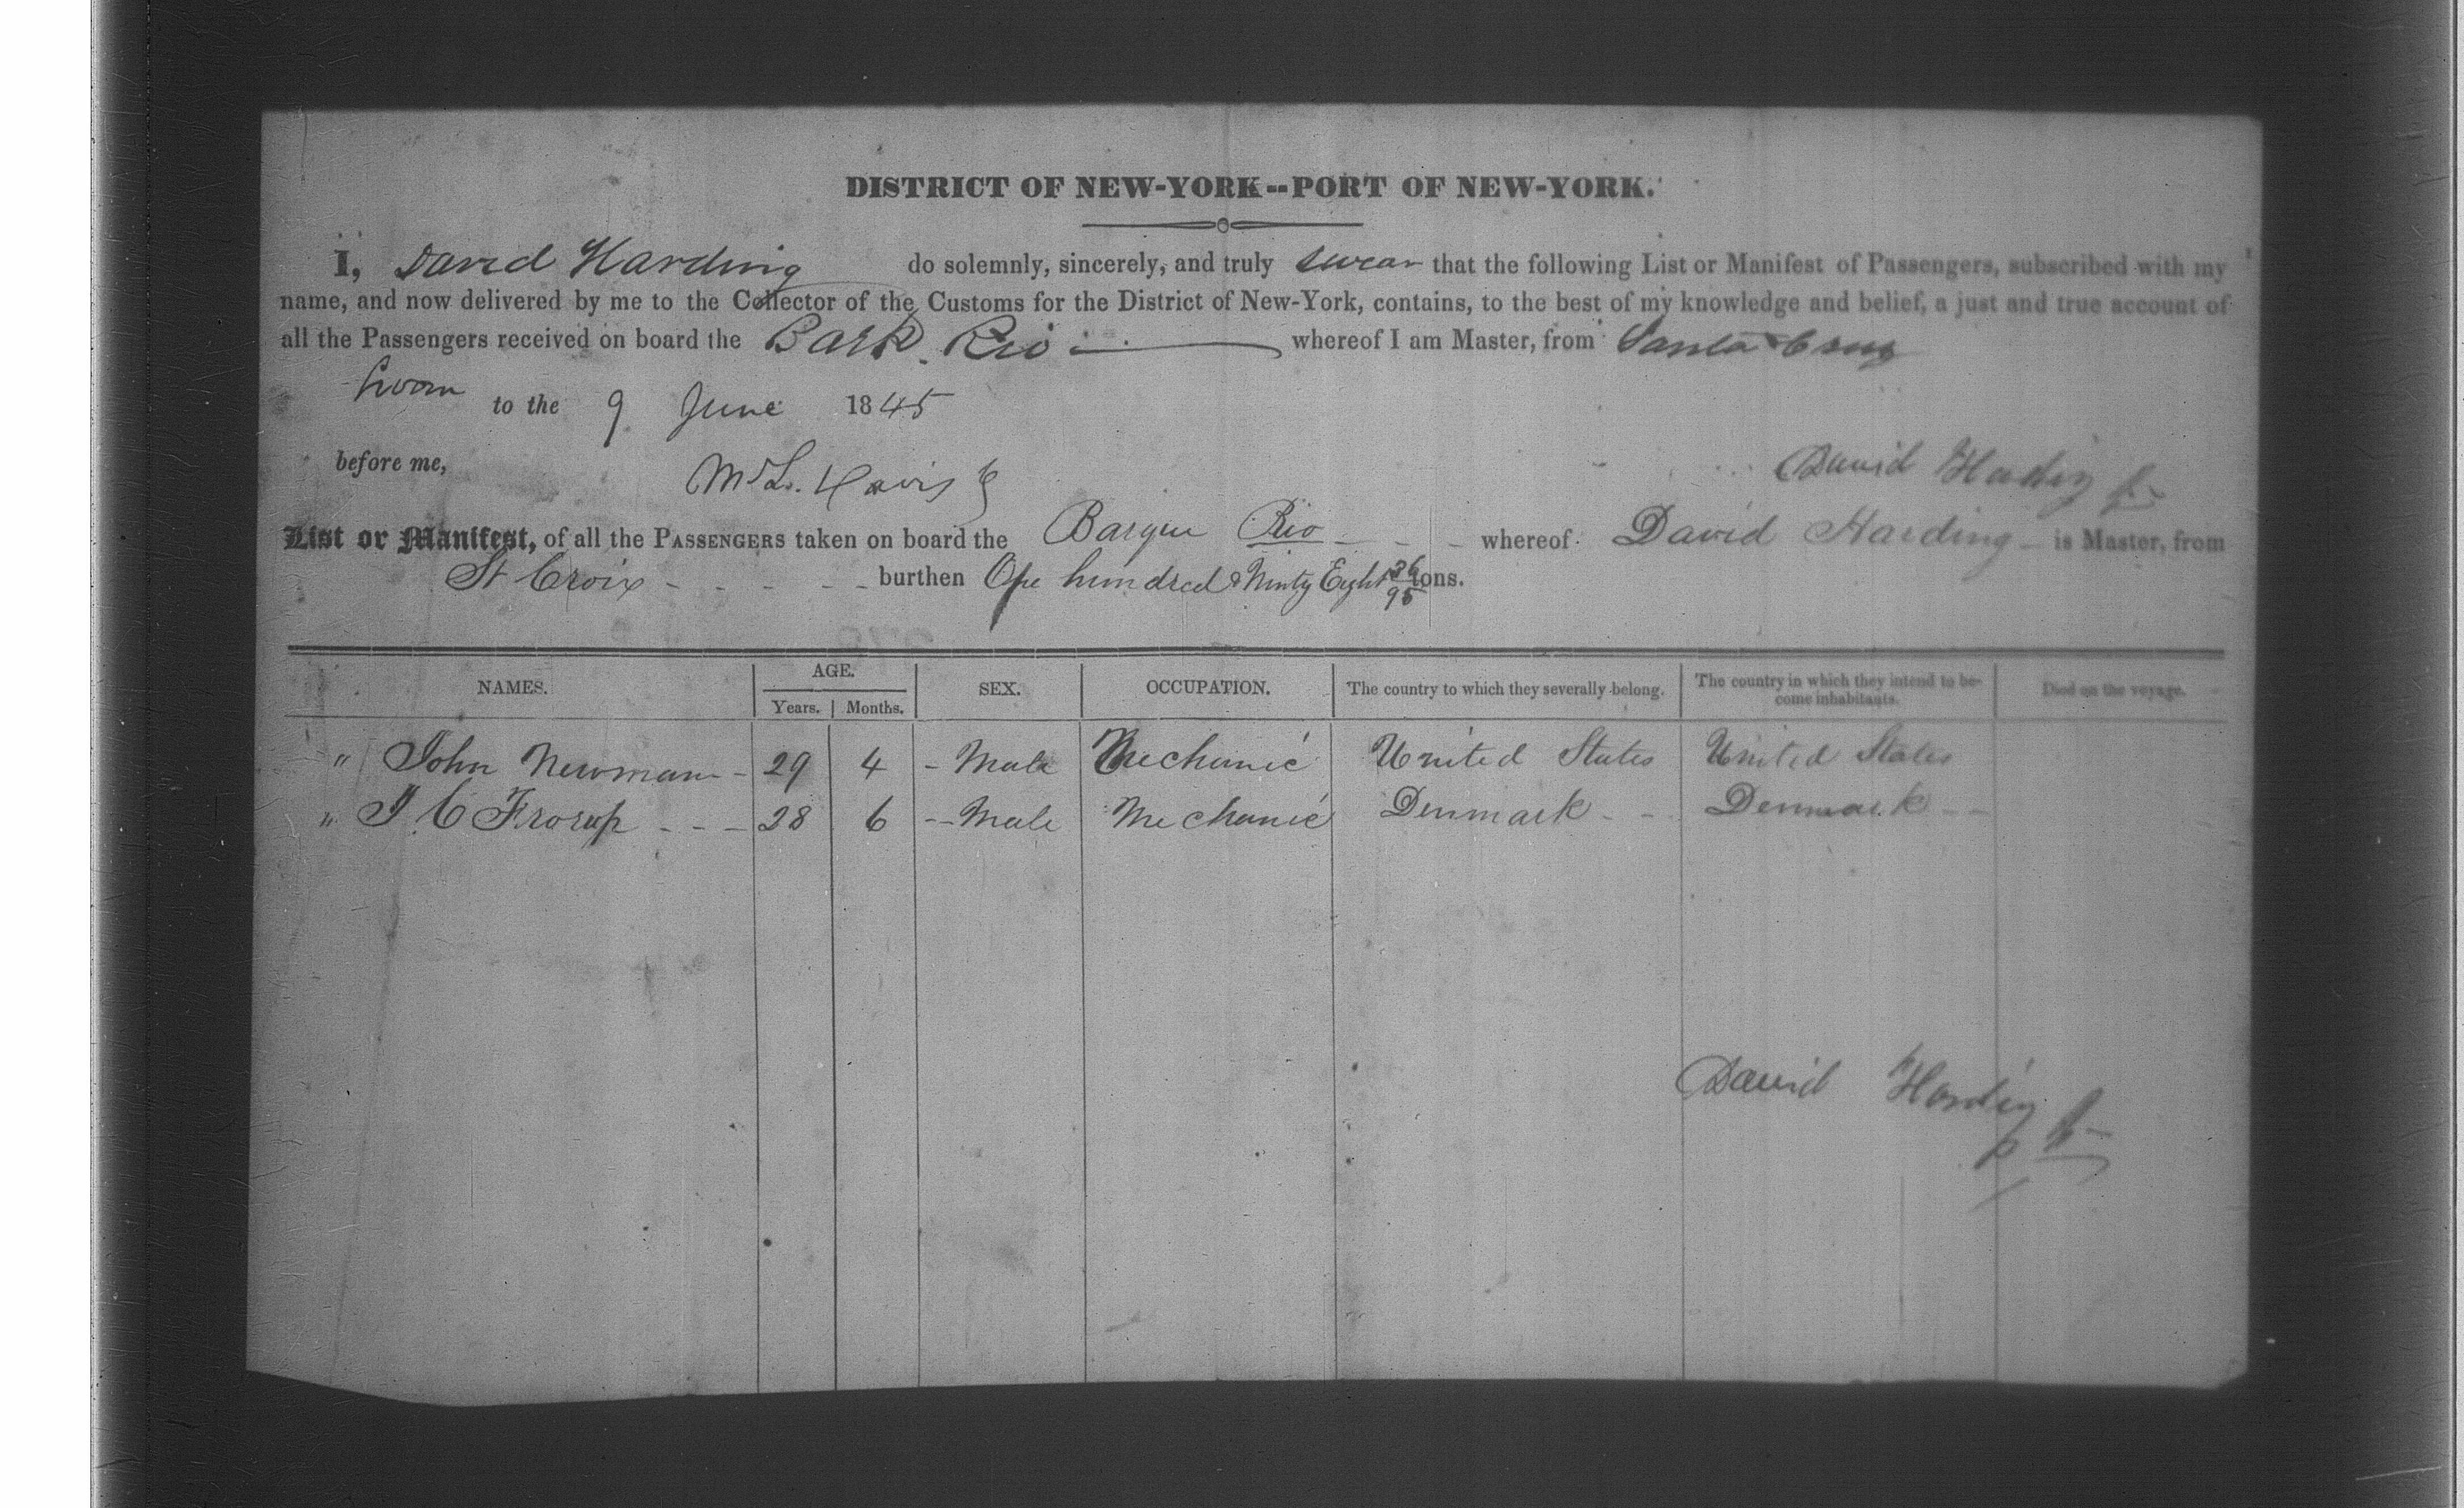 DISTRICT OF NEW-YORK--PORT OF NEW-YORK.
I, David Harding do solemnly, sincerely, and truly swear that the following List or Manifest of Passengers, subscribed with my
name, and now delivered by me to the Collector of the Customs for the District of New-York, contains, to the best of my knowledge and belief, a just and true account of
all the Passengers received on board the Bark Rio whereof I am Master, from Santa Cruz
Sworn to the 9 June 1845
before me, David Harding Jr
M L. Davis
List or Manifest, of all the PASSENGERS taken on board the Barque Rio - - - whereof David Harding - is Master, from
St Croix - - - - - burthen One hundred & Ninty Eight 36/95 tons.
NAMES. AGE. Years. Months. SEX. OCCUPATION. The country to which they severally belong. The country in which they intend to become inhabitants. Died on the voyage.
" John Newman - 29 4 - Male Mechanic United States United States
" J C Frorup - - - 28 6 - Male Mechanic Denmark - - Denmark - -
David Harding Jr